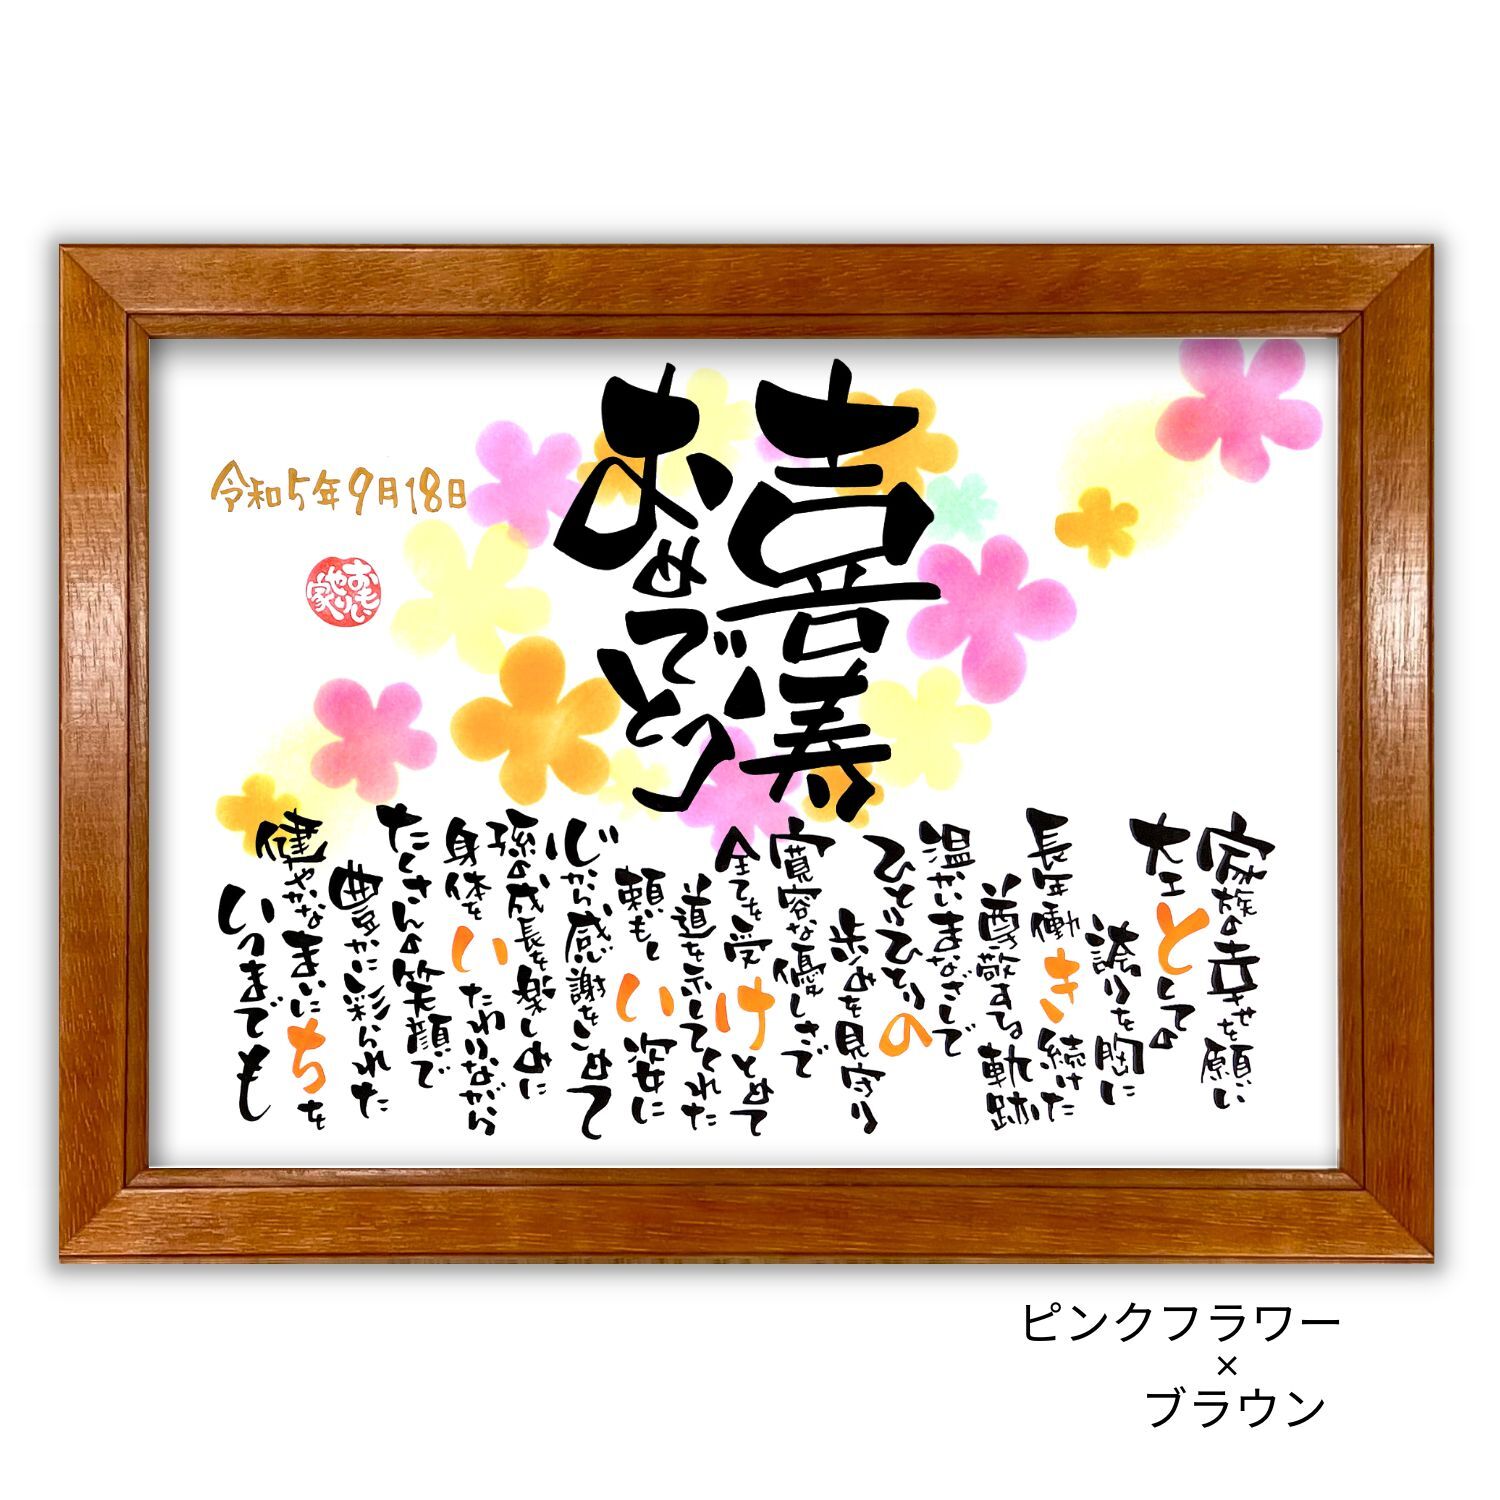 喜寿
おめでとう
令和5年9月18日
おもい
やり
家
家族の幸せを願い
大工としての
誇りを胸に
長年働き続けた
尊敬する軌跡
温かいまなざしで
ひとりひとりの
歩みを見守り
寛容な優しさで
全てを受けとめて
道を示してくれた
頼もしい姿に
心から感謝をこめて
孫の成長を楽しみに
身体をいたわりながら
たくさんの笑顔で
豊かに彩られた
健やかなまいにちを
いつまでも
ピンクフラワー
×
ブラウン